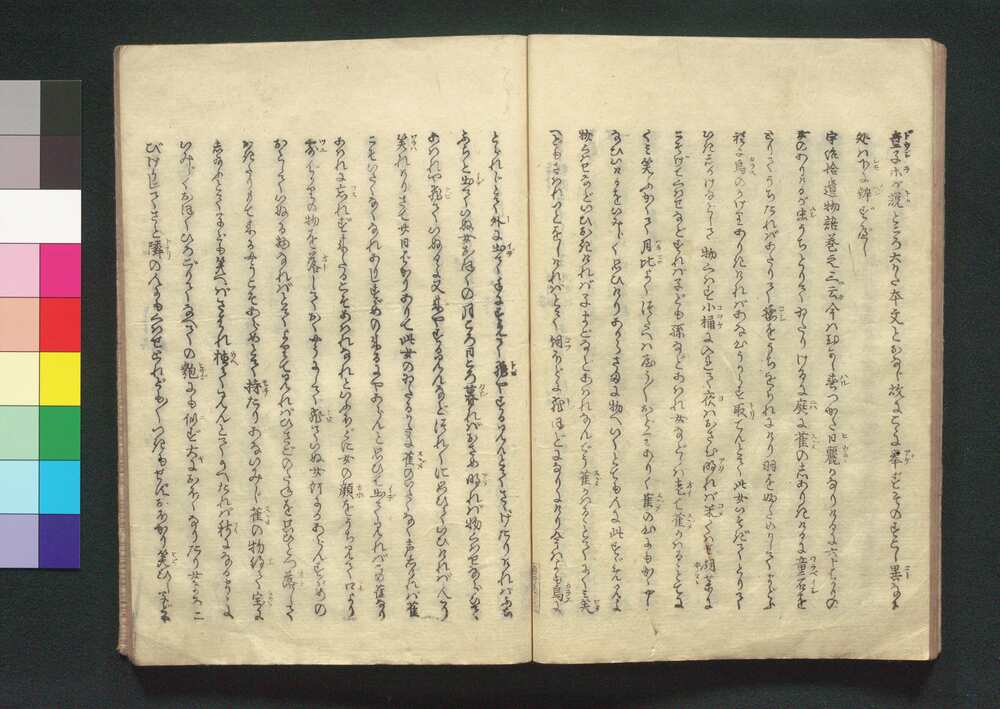 童子等が説ところ大かた本文とおなじ故にこゝに挙ずそのすこし異なる
処は下に辨ずべし
宇治拾遺物語巻之三云今は昔春つかた日麗かなりけるに六十ばかりの
女のありけるが虫うちとりてゐたりけるに庭に雀のしありきけるを童石を
とりてうちたればあたりて腰をうちをられにけり羽をふためかしてまどふ
程に烏のかけりありきければあな心うし烏取てんとて此女いそぎてとりて
いきしかけなどして物くはす小桶に入れて夜はおさむ明れば米くはせ銅薬に
こそげてくはせなどすれば子ども孫などあはれ女などじは老て雀かはるゝとてに
くみ笑ふかくて月比よくつくろへばやう〳〵おどりありく雀の心にもかくやし
なひいけるをいみじくうれしと思ひけりあからさまに物へいくとても人に此すゞめみよ
物くはせよなどいひ置ければ子まごなどあはれなんでう雀かはるゝとてにくみ笑
へどもさはれいとをしければとて飼ほどに飛ほどになりにけり今はよも烏に
とられじとて外に出て手にすゑて飛やするみんとてさゝげたりければふら
ふらと出ていぬ女おほくの月ごろ日ごろ暮ればおさめ明れば物くはせならひて
あはれや飛ていぬるよ又来やするとみんなどつれ〴〵に思ひていひければ人に
笑れけりさて廿日ばかりありて此女のゐたるかたに雀のいたくなく声しければ雀
こそいたくなくなれありしすゞめの来るにやあらんと思ひて出てみれば此雀なり
あはれに忘れず来たるこそあはれなれといふほどに女の顔をうちみて口より
露ばかりの物を落しおくやうにして飛ていぬ女何にかあらんすゞめの
おとしていぬる物はなんぞとてよりてみればひさごのたねを只ひとつ落して
おきたりもて来るやうこそあらめとて持たりあないみじ雀の物得て宝に
し給ふとて子ども笑へばさはれ植てみんとてうゑたれば秋になるまゝに
いみじくおほくおひひろごりてなべての匏にも似ず大におほくなりたり女悦
びけふじてさと隣の人にもくはせとれども〳〵つきもせずおほかり笑ひし子まご